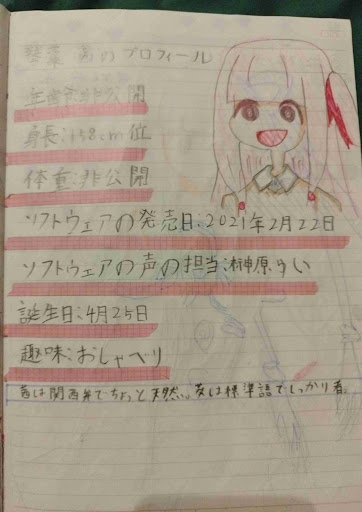 琴葉 茜のプロフィール
年齢:非公開
身長:158cm位
体重:非公開
ソフトウェアの発売日:2021年2月22日
ソフトウェアの声の担当:榊原ゆい
誕生日:4月25日
趣味:おしゃべり
茜は関西弁でちょっと天然、葵は標準語でしっかり者。